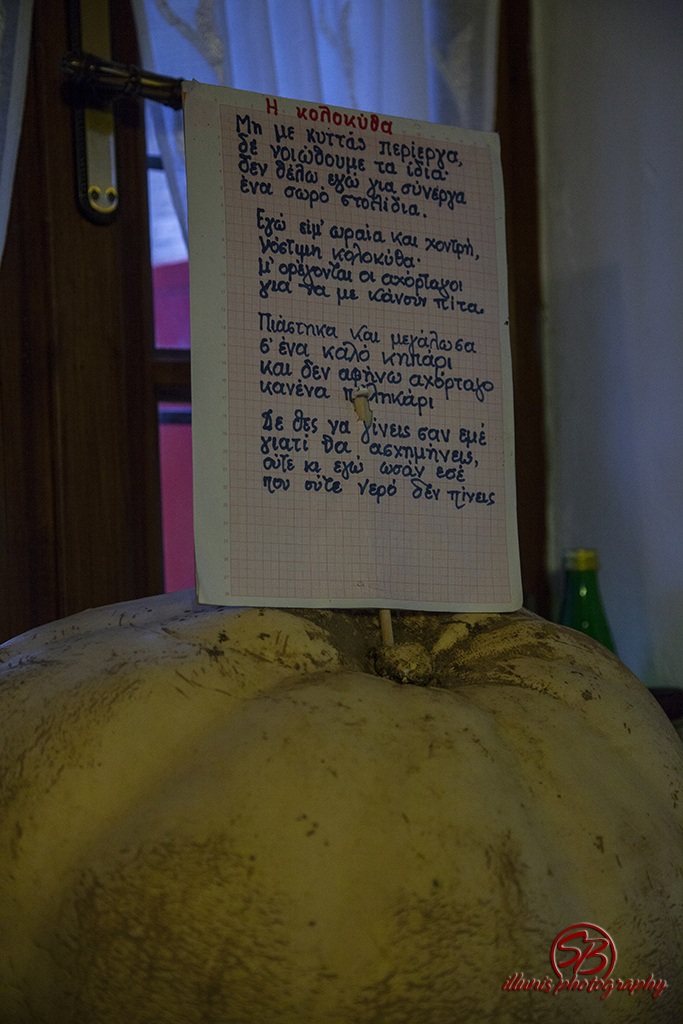 Η κολοκύθα
Μη με κυττάς περίεργα,
δε νοιώθουμε τα ίδια·
δεν θέλω εγώ για σύνεργα
ένα σωρό στολίδια.
Εγώ είμ' ωραία και χοντρή,
νόστιμη κολοκύθα·
μ' ορέγονται οι αχόρταγοι
για να με κάνουν πίτα.
Πιάστηκα και μεγάλωσα
σ' ένα καλό κηπάρι
και δεν αφήνω αχόρταγο
κανένα
Δε θες να γίνεις σαν εμέ
γιατί θα ασχημήνεις,
ούτε κι εγώ ωσάν εσέ
που ούτε νερό δεν πίνεις
SB
illunis photography